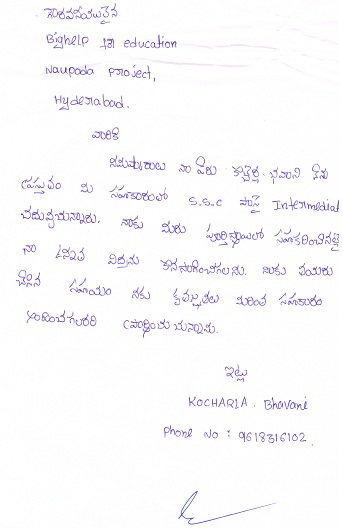 గౌరవనీయులైన
Bighelp for education
Naupada project,
Hyderabad.
వారికి
నమస్కారాలు నా పేరు కొచ్చెర్ల భవాని నేను
ప్రస్తుతం మీ సహకారంలో S.S.C పాసై Intermediat
చదువుచున్నాను. నాకు మీరు పూర్తిస్థాయిలో సహకరించినట్లై
నా ఉన్నత విద్యను కొనసాగించగలను. నాకు మీరు
చేసిన సహాయం నకు కృతజ్ఞతలు మరింత సహకారం
అందించగలరని ప్రార్థించుచున్నాను.
ఇట్లు
KOCHARLA. Bhavani
Phone No : 9618316102.